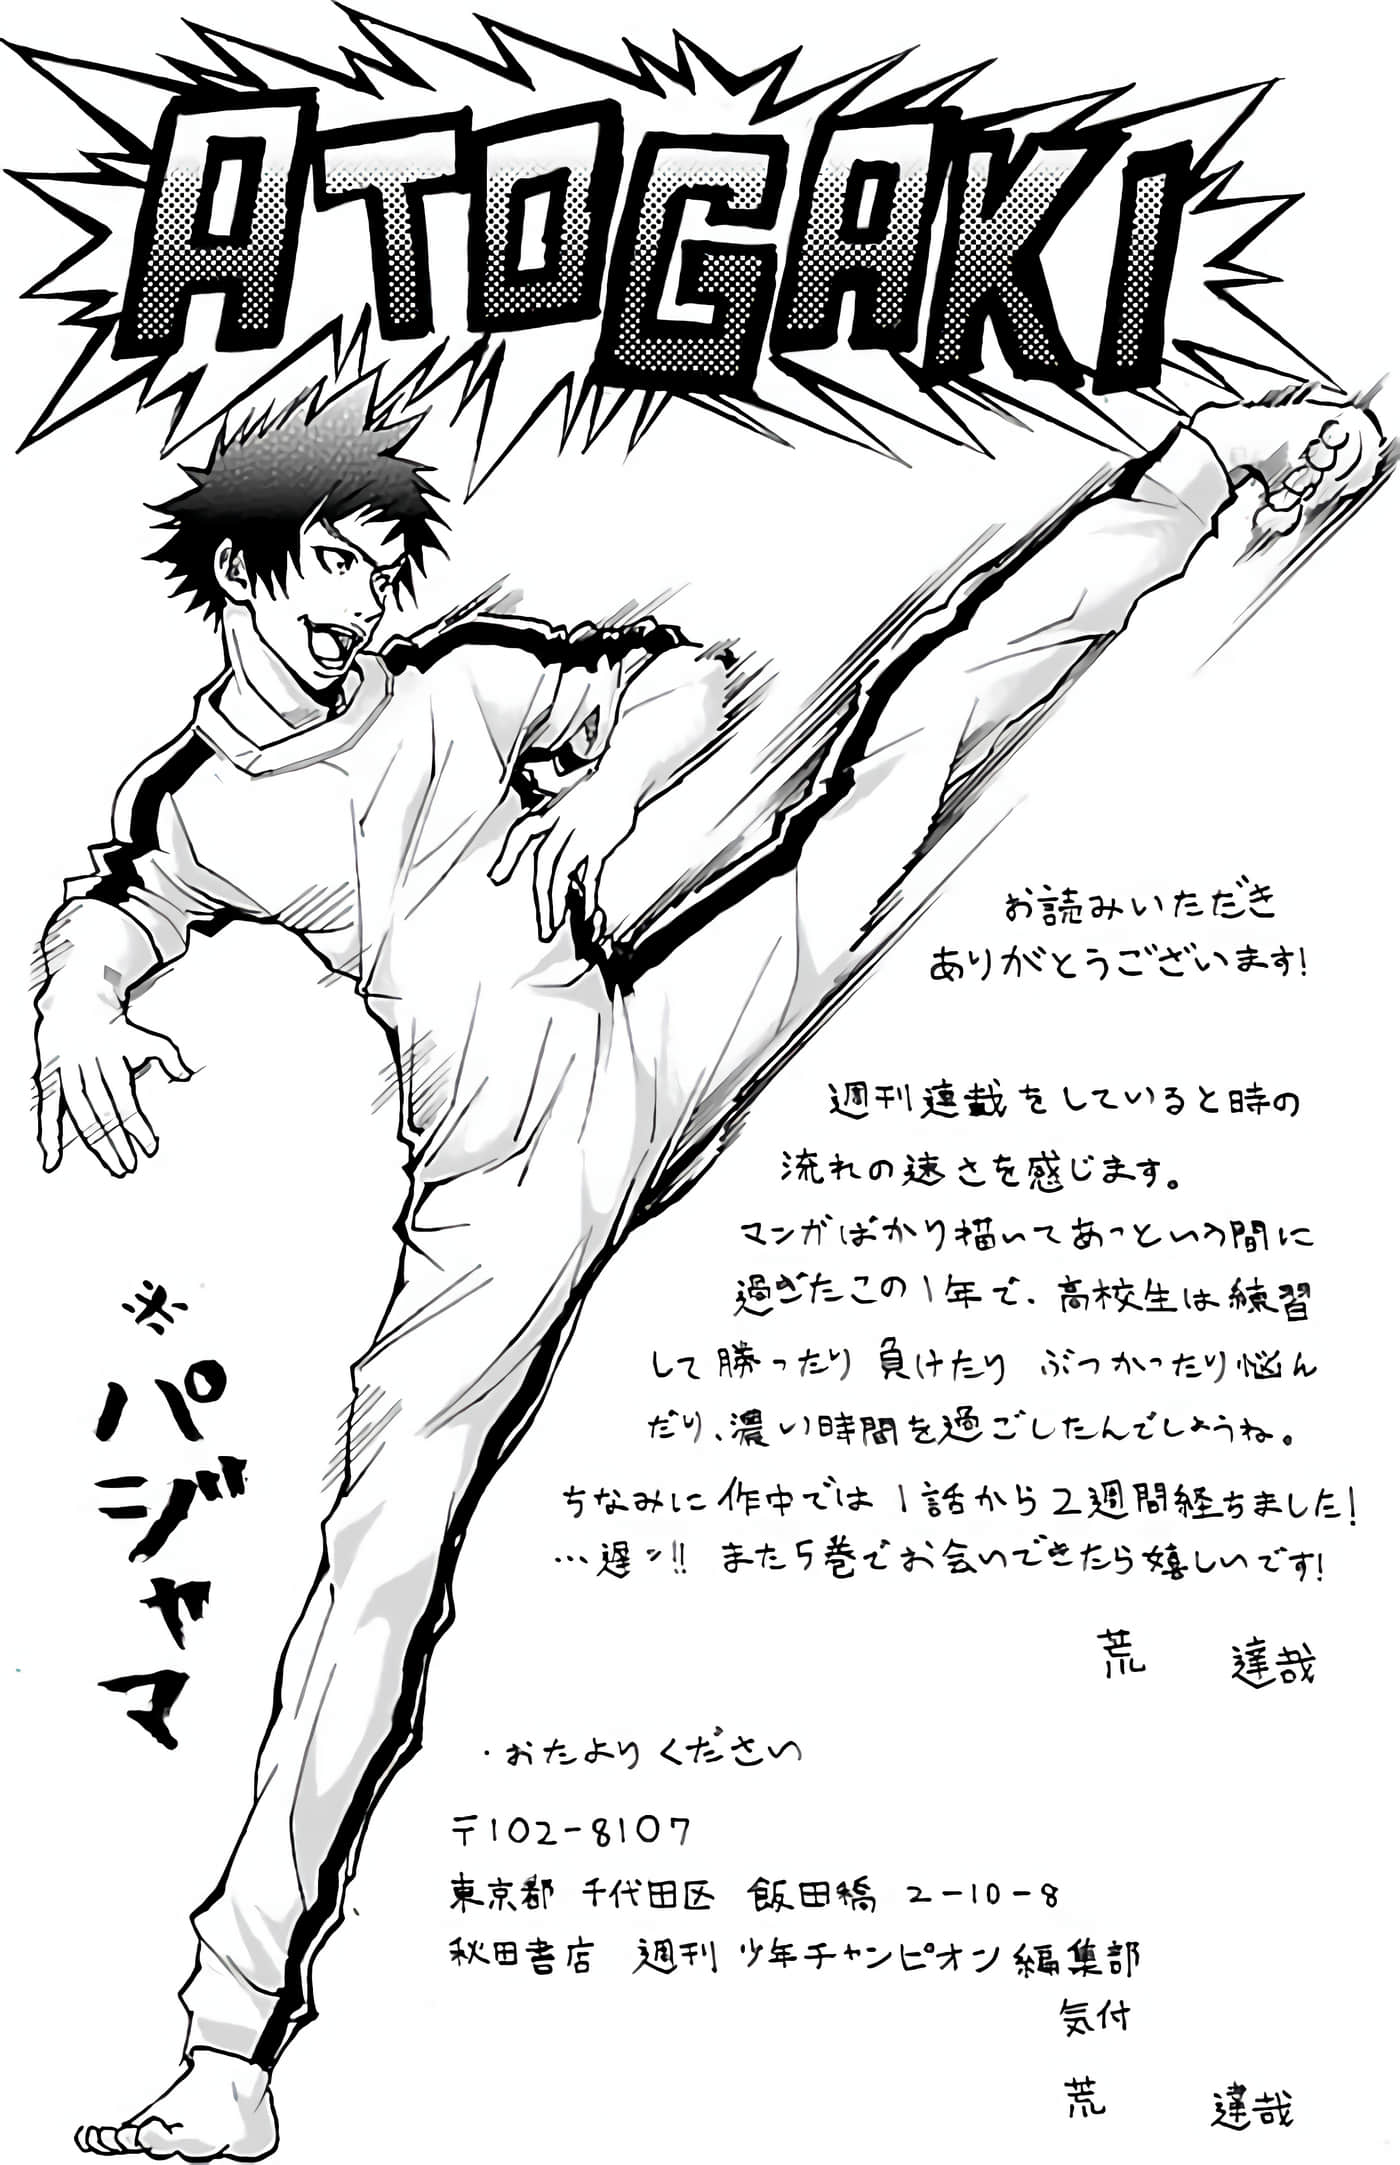 ATOGAKI
お読みいただき
ありがとうございます!
週刊連載をしていると時の
流れの速さを感じます。
マンガばかり描いてあっという間に
過ぎたこの1年で、高校生は練習
して勝ったり負けたり ぶつかったり悩ん
だり、濃い時間を過ごしたんでしょうね。
ちなみに作中では1話から2週間経ちました!
…遅ッ!! また5巻でお会いできたら嬉しいです!
荒 達哉
※パジャマ
・おたよりください
〒102-8107
東京都 千代田区 飯田橋 2-10-8
秋田書店 週刊少年チャンピオン編集部
気付
荒 達哉